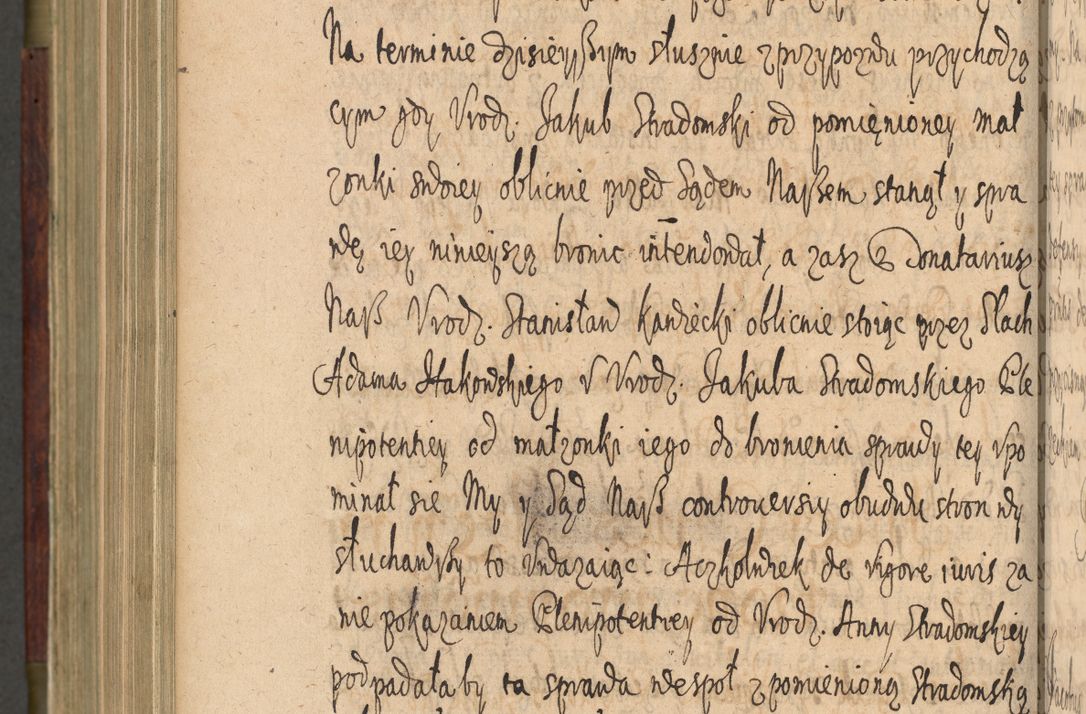 Na terminie dzisieyßym słusznie z przypozwu przychodzą
cym gdy Vrodz. Jakub Stradomski od pomięnioney mał
zonki swoiey oblicnie przed Sądem Naszßem stanął y spra
wę iey ninieyszą bronic intendował, a zasz Donatariusz
Naß Vrodz. Stanisław Kawiecki oblicnie stoiąc przez Slach
Adama Makowskiego V Vrodz. Jakuba Stradomskiego Ple
nipotentiey od małzonki iego do bronienia sprawy tey vpo
minał sie My y Sąd Naß controuersiy obudwu stron wy
słuchawßy to Vwazaiąc: Aczkolwiek de rigore iuris za
nie pokazaniem Plenipotentiey od Vrodz. Anny Stradomskiey
podpadałaby ta sprawa wespoł z pomienioną Stradomską